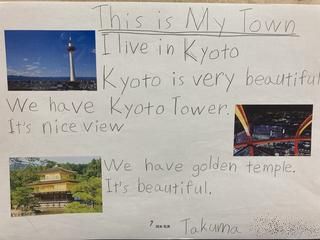 This is My Town
I live in Kyoto
Kyoto is very beautiful
We have Kyoto Tower.
It's nice view
We have golden temple.
It's beautiful.
7
Takuma